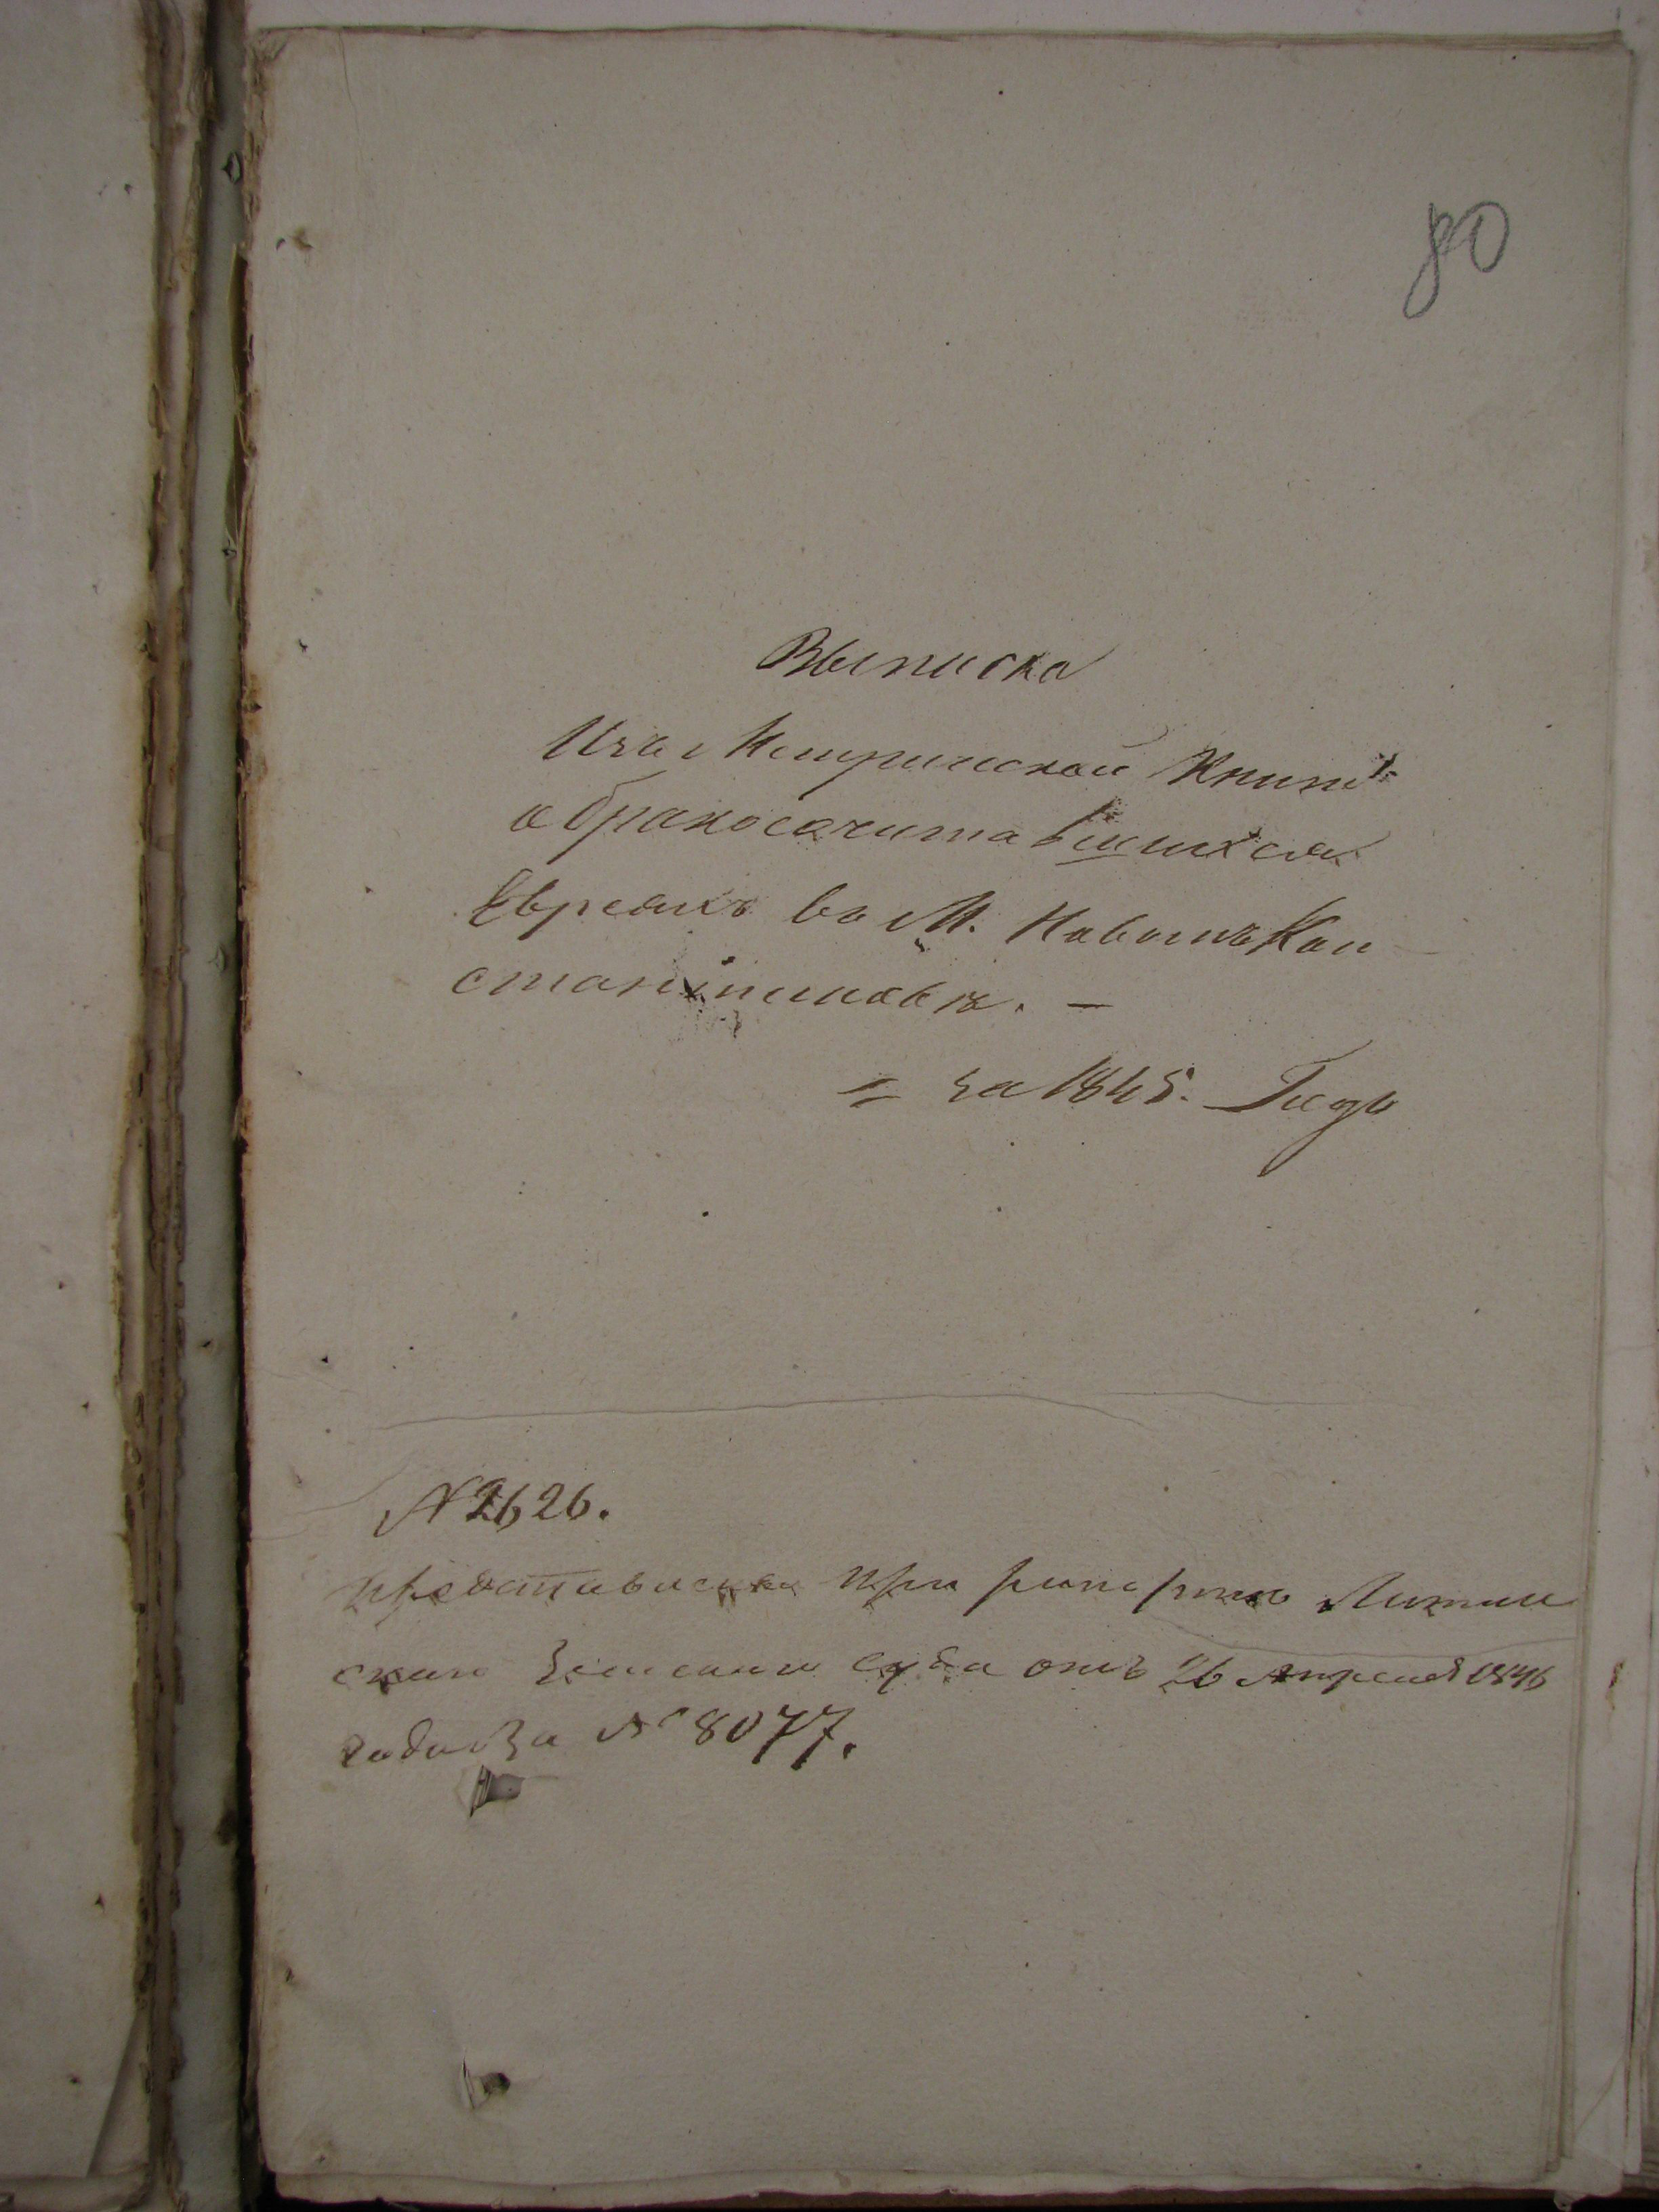 80
Выписка
Изъ Метрической Книги
о бракосочитавшихся
Евреяхъ въ М. Новомъ Кон
стантиновѣ. —
= за 1845. Годъ
№ 2626.
представлена при рапортѣ Литин
скаго Земскаго суда отъ 26 Апреля 1846
года за № 8077.